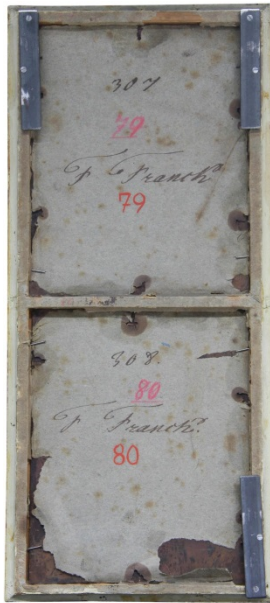 307
79
F Franck?
79
308.
80
F Franck?
80